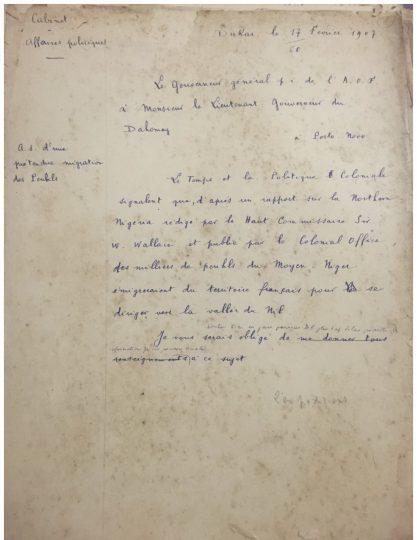 Cabinet
Affaires politiques
Dakar le 17 Février 1907
Le Gouverneur général p.i. de l'A.O.F
à Monsieur le Lieutenant Gouverneur du
Dahomey
à Porto Novo
A.S. d'une
prétendue migration
des Peuhls
Le Temps et la Politique Coloniale
signalent que, d'après un rapport sur la Northern
Nigeria rédigé par le Haut Commissaire Sir
W. Wallace et publié par le Colonial Office,
des milliers de peuhls du Moyen Niger
émigreraient du territoire français pour se
diriger vers la vallée du Nil
Je vous serais obligé de me donner tous
renseignements à ce sujet